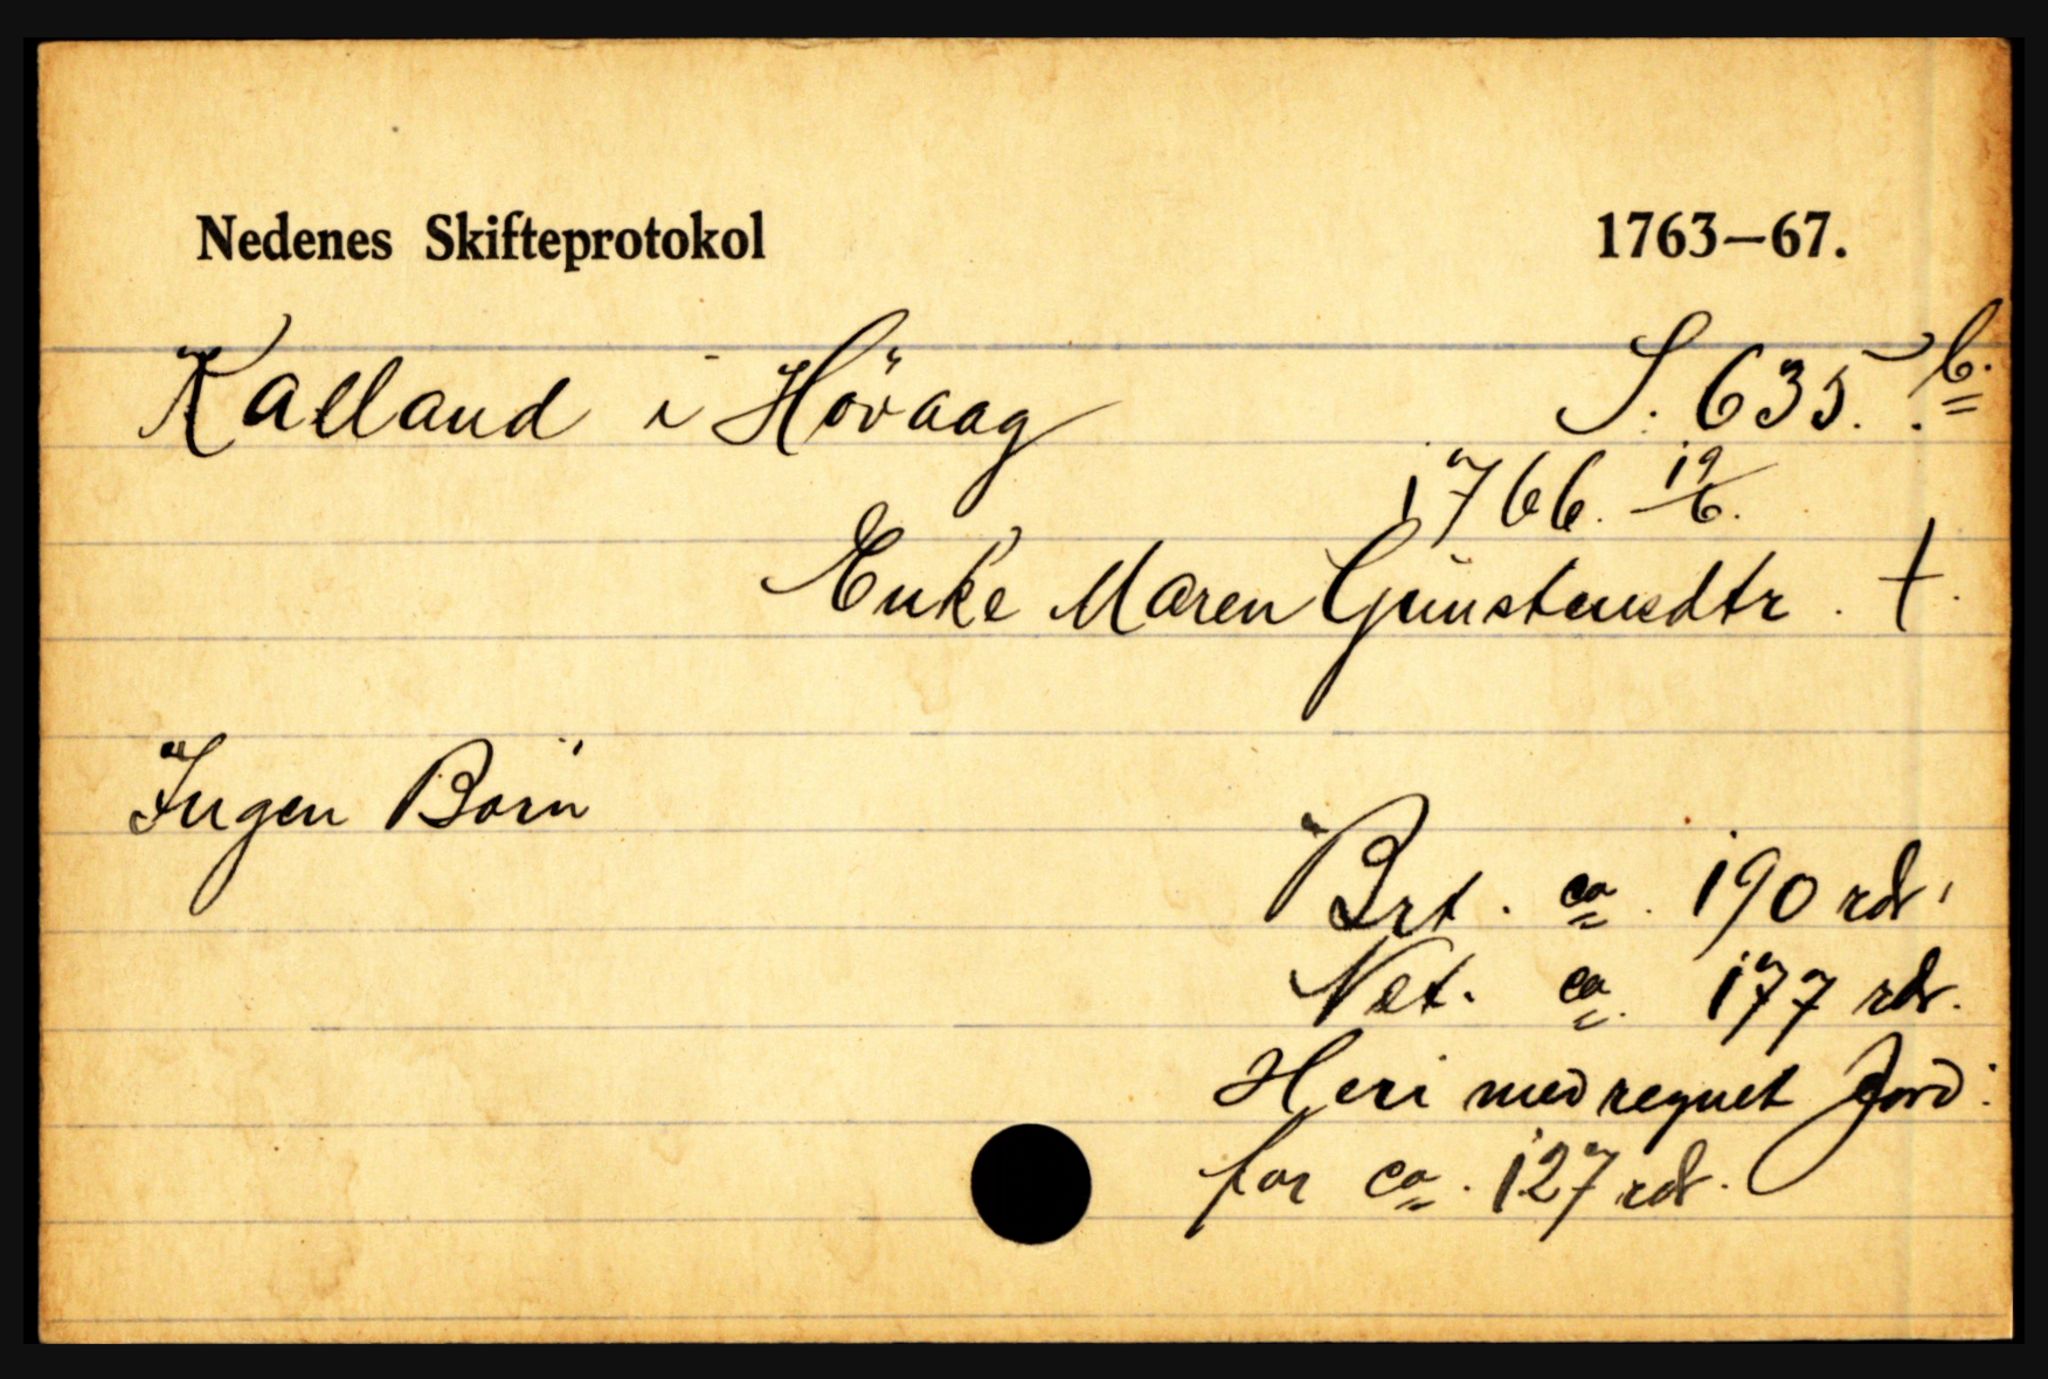 Nedenes Skifteprotokol 1763—67.
Kalland i Hövaag S. 635. b.
1766. 19/6.
Enke Maren Gunstensdtr. †.
Ingen Börn
Brt. ca. 190 rdr.
Net. ca. 177 rdr.
Heri medregnet Jord
for ca. 127 rdr.